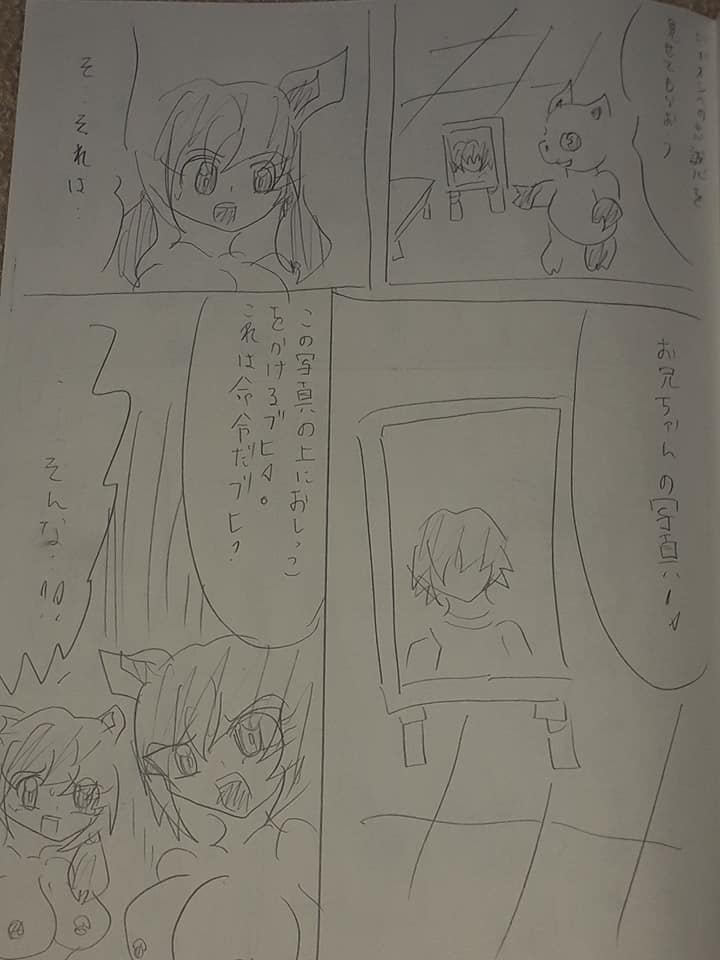 見せてもらおう
そ‥それは‥
お兄ちゃんの写真ハート
この写真の上におしっこ
をかけるブヒィ。
これは命令だブヒ?
‥‥そんな‥!!!